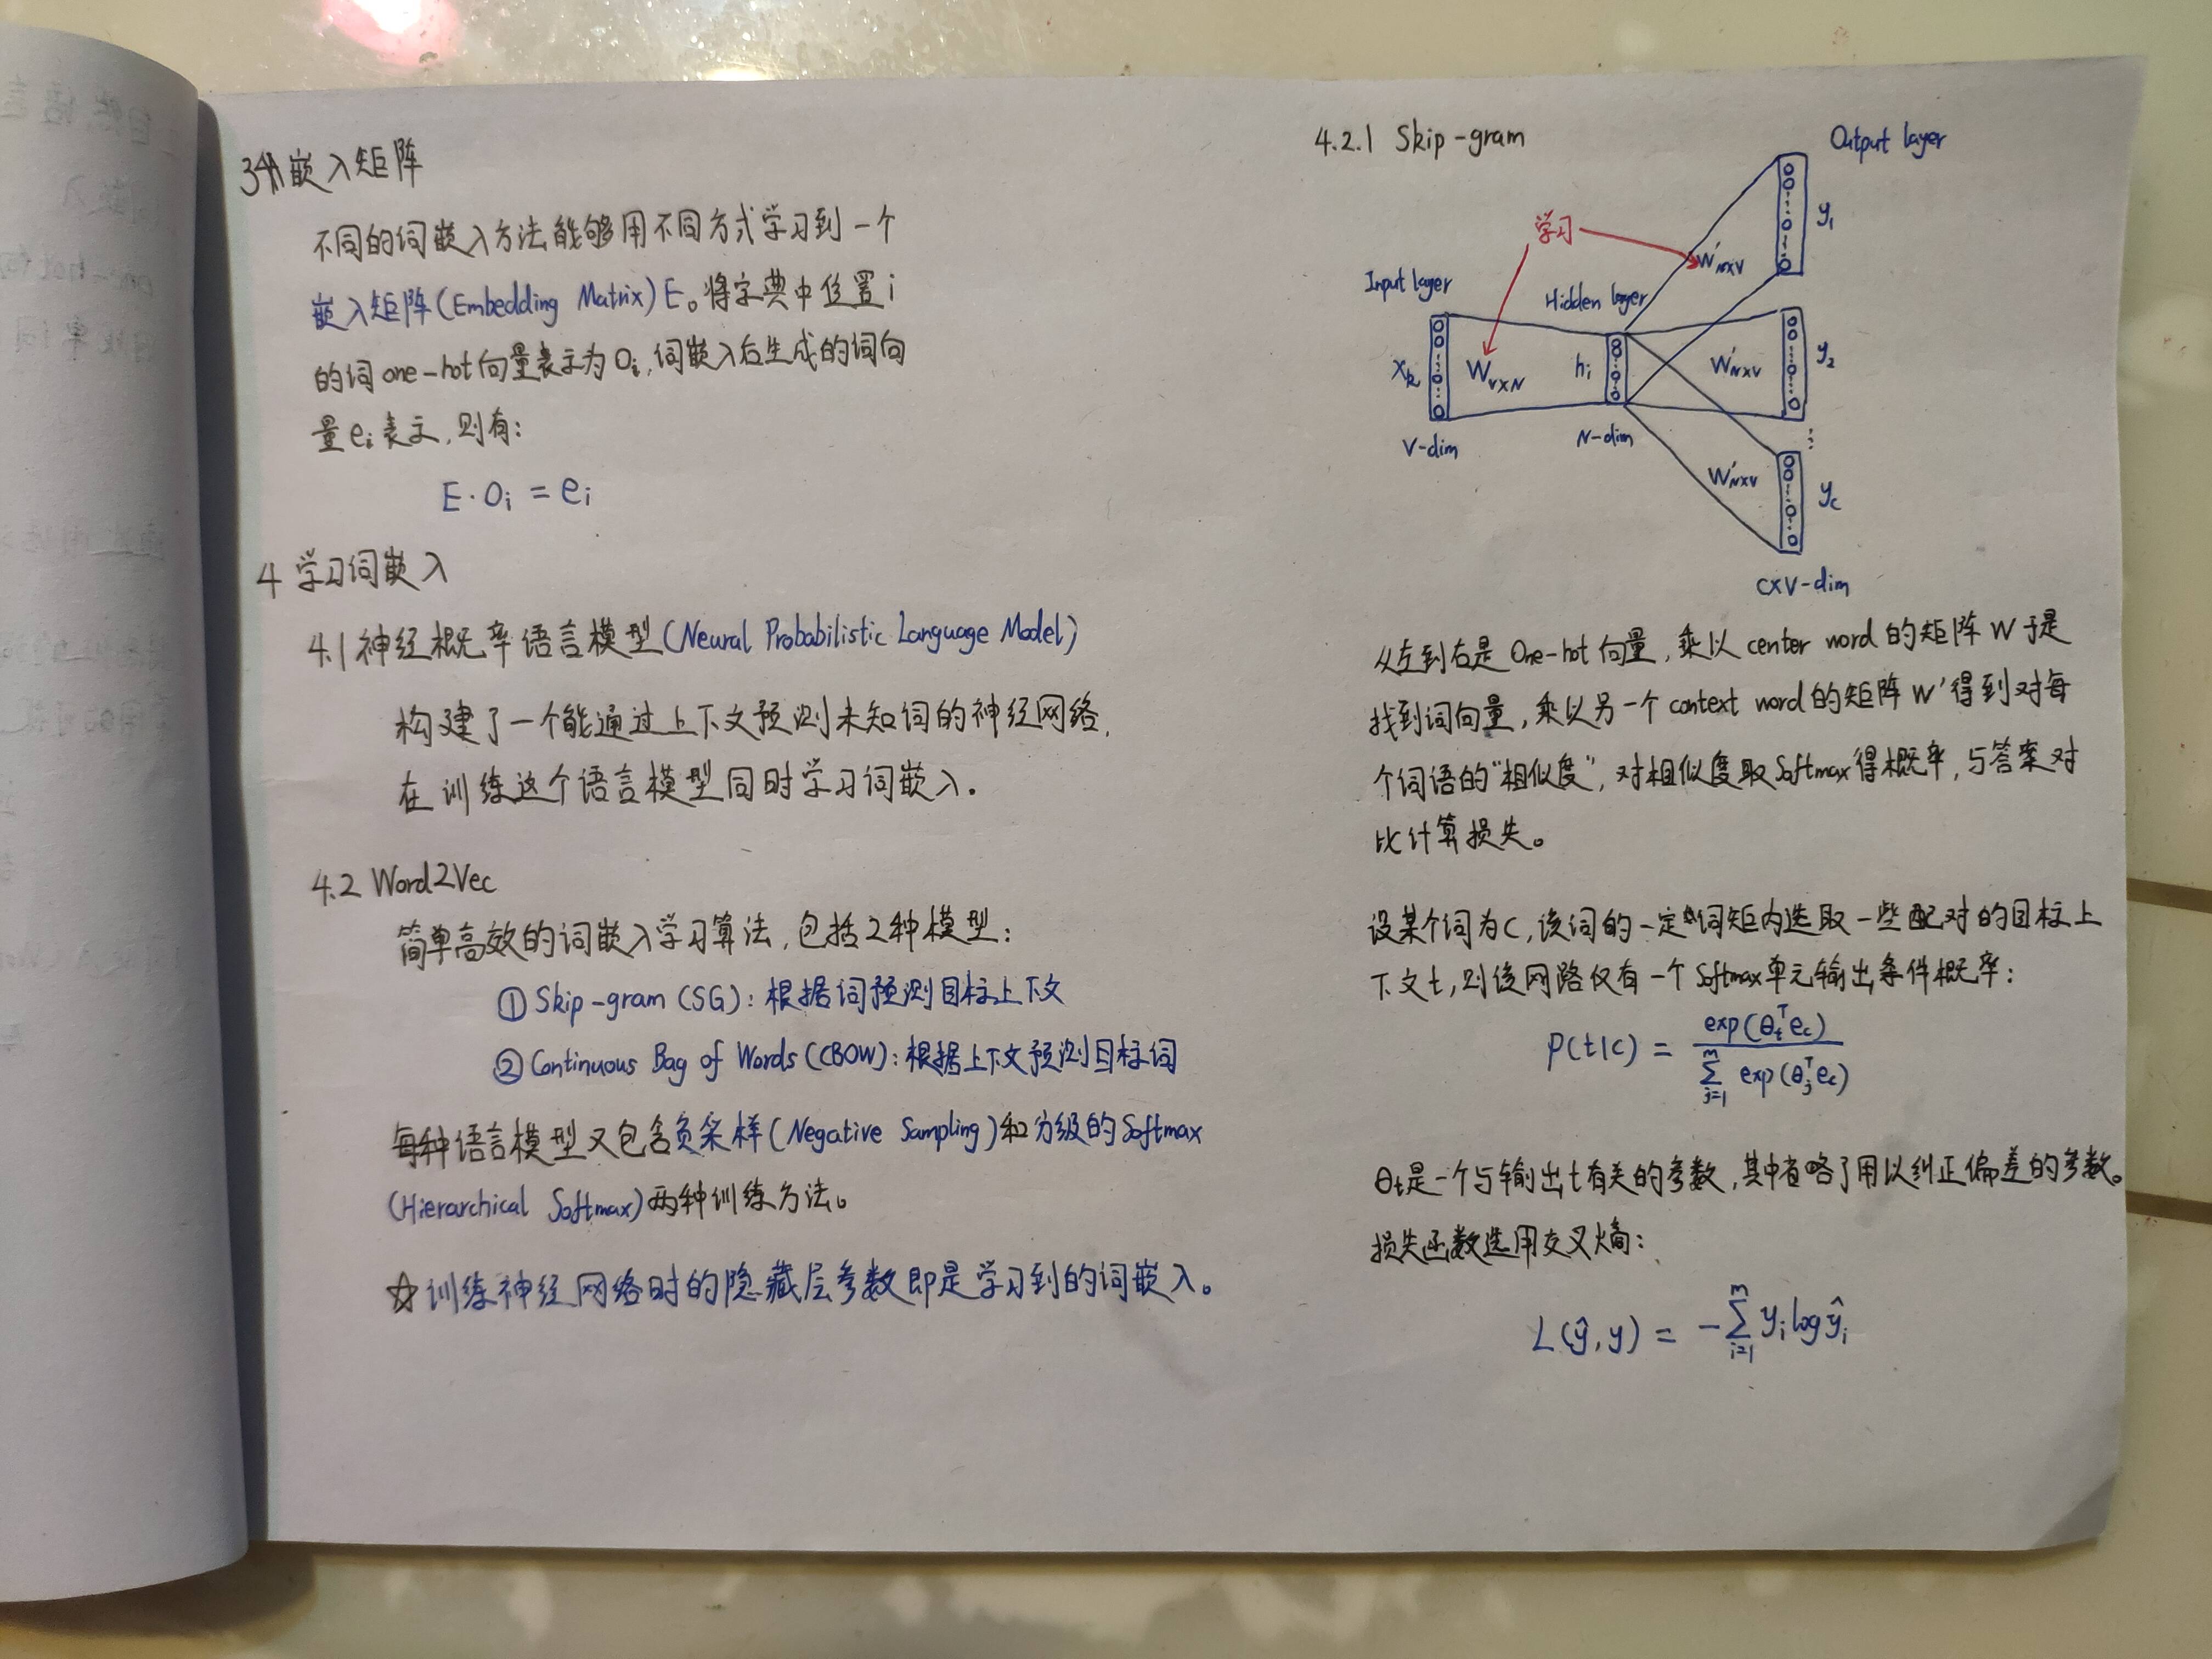 3 嵌入矩阵
不同的词嵌入方法能够用不同方式学习到一个
嵌入矩阵(Embedding Matrix)E。将字典中位置i
的词one-hot向量表示为Oi,词嵌入后生成的词向
量ei表示,则有:
E·Oi = ei
4 学习词嵌入
4.1 神经概率语言模型(Neural Probabilistic Language Model)
构建了一个能通过上下文预测未知词的神经网络,
在训练这个语言模型同时学习词嵌入.
4.2 Word2Vec
简单高效的词嵌入学习算法,包括2种模型:
① Skip-gram (SG): 根据词预测目标上下文
② Continuous Bag of Words (CBOW): 根据上下文预测目标词
每种语言模型又包含负采样(Negative Sampling)和分级的Softmax
(Hierarchical Softmax)两种训练方法。
☆训练神经网络时的隐藏层参数即是学习到的词嵌入。
4.2.1 Skip-gram
Output layer
y1
学习
W'N×V
Input layer
Hidden layer
xk
WV×N
hi
W'N×V
y2
V-dim
N-dim
W'N×V
yc
C×V-dim
从左到右是One-hot向量,乘以center word的矩阵W于是
找到词向量,乘以另一个context word的矩阵W'得到对每
个词语的"相似度",对相似度取Softmax得概率,与答案对
比计算损失。
设某个词为C,该词的一定词矩内选取一些配对的目标上
下文t,则该网路仅有一个Softmax单元输出条件概率:
P(t|c) = exp(θt^T ec) / Σ_{j=1}^{m} exp(θj^T ec)
θt是一个与输出t有关的参数,其中省略了用以纠正偏差的参数。
损失函数选用交叉熵:
L(ŷ,y) = -Σ_{i=1}^{m} yi log ŷi